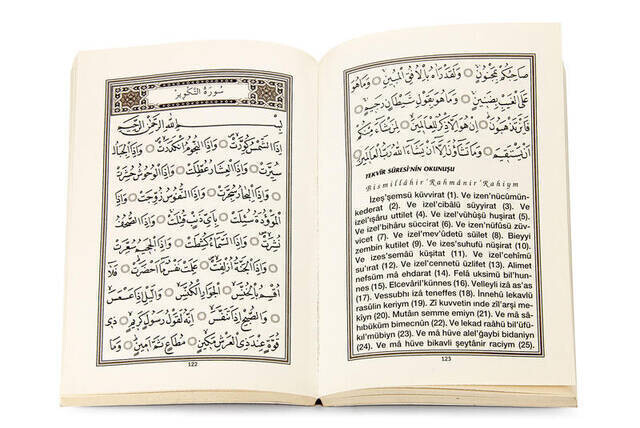 سُورَةُ التَّكْوِيرِ
بِسْمِ اللّٰهِ الرَّحْمٰنِ الرَّحِيمِ
اِذَا الشَّمْسُ كُوِّرَتْ ○ وَاِذَا النُّجُومُ انْكَدَرَتْ ○ وَاِذَا الْجِبَالُ
سُيِّرَتْ ○ وَاِذَا الْعِشَارُ عُطِّلَتْ ○ وَاِذَا الْوُحُوشُ حُشِرَتْ
○ وَاِذَا الْبِحَارُ سُجِّرَتْ ○ وَاِذَا النُّفُوسُ زُوِّجَتْ ○ وَاِذَا
الْمَوْؤُدَةُ سُئِلَتْ ○ بِاَىِّ ذَنْبٍ قُتِلَتْ ○ وَاِذَا الصُّحُفُ
نُشِرَتْ ○ وَاِذَا السَّمَاءُ كُشِطَتْ ○ وَاِذَا الْجَحِيمُ سُعِّرَتْ
○ وَاِذَا الْجَنَّةُ اُزْلِفَتْ ○ عَلِمَتْ نَفْسٌ مَا اَحْضَرَتْ ○ فَلَا
اُقْسِمُ بِالْخُنَّسِ ○ اَلْجَوَارِ الْكُنَّسِ ○ وَالَّيْلِ اِذَا عَسْعَسَ
○ وَالصُّبْحِ اِذَا تَنَفَّسَ ○ اِنَّهُ لَقَوْلُ رَسُولٍ كَرِيمٍ ○ ذِى
قُوَّةٍ عِنْدَ ذِى الْعَرْشِ مَكِينٍ ○ مُطَاعٍ ثَمَّ اَمِينٍ ○ وَمَا
122
صَاحِبُكُمْ بِمَجْنُونٍ ○ وَلَقَدْ رَاٰهُ بِالْاُفُقِ الْمُبِينِ ○ وَمَا هُوَ
عَلَى الْغَيْبِ بِضَنِينٍ ○ وَمَا هُوَ بِقَوْلِ شَيْطَانٍ رَجِيمٍ ○
فَاَيْنَ تَذْهَبُونَ ○ اِنْ هُوَ اِلَّا ذِكْرٌ لِلْعَالَمِينَ ○ لِمَنْ شَاءَ مِنْكُمْ
اَنْ يَسْتَقِيمَ ○ وَمَا تَشَاؤُنَ اِلَّا اَنْ يَشَاءَ اللّٰهُ رَبُّ الْعَالَمِينَ
TEKVÎR SÛRESİ'NİN OKUNUŞU
Bismillâhir'Rahmânir'Rahiym
İzeş'şemsü küvvirat (1). Ve izen'nücûmün-
kederat (2). Ve izel'cibâlü süyyirat (3). Ve
izel'ışâru uttilet (4). Ve izel'vühûşü huşirat (5).
Ve izel'bihâru süccirat (6). Ve izen'nüfûsü züv-
vicet (7). Ve izel'mev'ûdetü süilet (8). Bieyyi
zembin kutilet (9). Ve izes'suhufü nüşirat (10).
Ve izes'semâü küşitat (11). Ve izel'cehîmü
su'ırat (12). Ve izel'cennetü üzlifet (13). Alimet
nefsüm mâ ehdarat (14). Felâ uksimü bil'hun-
nes (15). Elcevâril'künnes (16). Velleyli izâ as'as
(17). Vessubhı izâ teneffes (18). İnnehû lekavlü
rasûlin keriym (19). Zî kuvvetin ınde zîl'arşi me-
kiyn (20). Mutâın semme emiyn (21). Ve mâ sâ-
hıbüküm bimecnûn (22). Ve lekad raâhü bil'üfü-
kıl'mübiyn (23). Ve mâ hüve alel'ğaybi bidaniyn
(24). Ve mâ hüve bikavli şeytânir raciym (25).
123